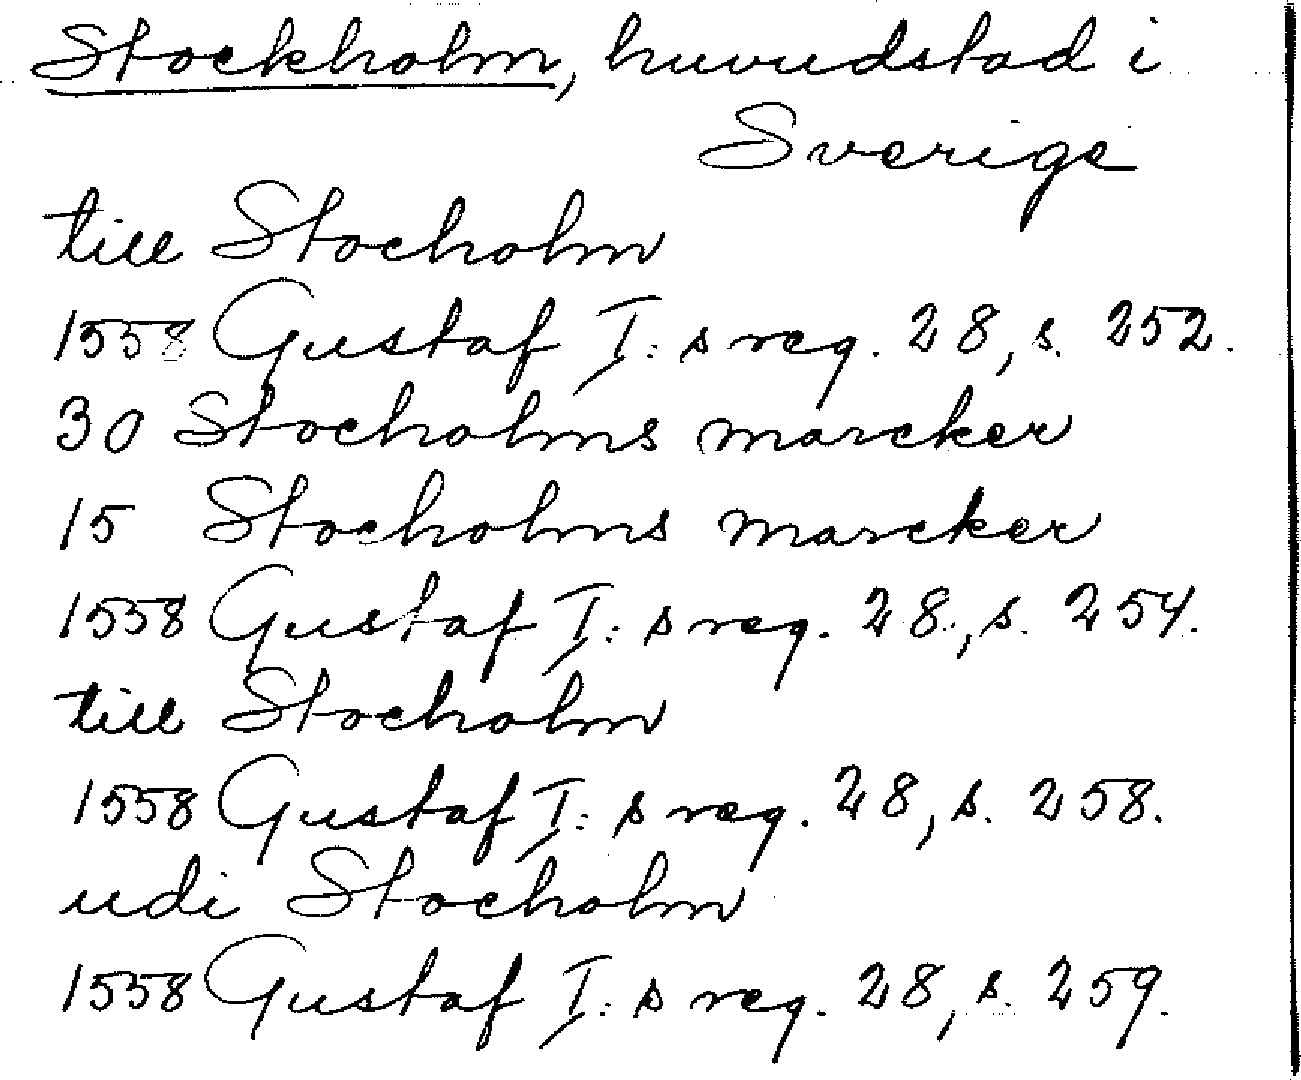 Stockholm, huvudstad i
Sverige
till Stocholm
1558 Gustaf I:s reg. 28, s. 252.
30 Stocholms marcker
15 Stocholms marcker
1558 Gustaf I:s reg. 28, s. 254.
till Stocholm
1558 Gustaf I:s reg. 28, s. 258.
udi Stocholm
1558 Gustaf I:s reg. 28, s. 259.